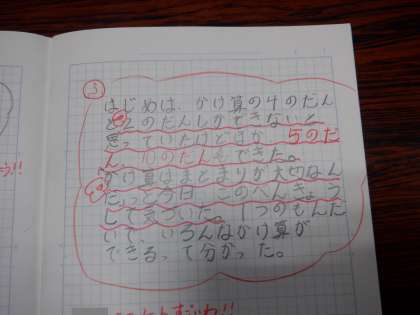 う
はじめは、かけ算の4のだん
と2のだんしかできないと
思っていたけどほか 5のだ
ん、10のだんもできた。
かけ算はまとまりが大切なん
だっと今日 このべんきょう
してきづいた。1つのもんだ
いで、いろんなかけ算が
できるって分かった。